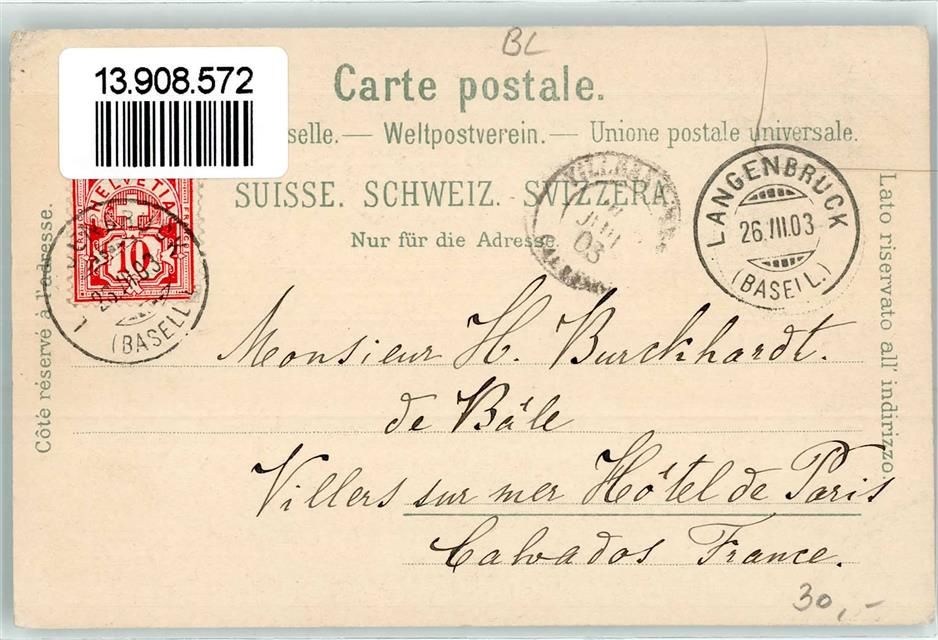 BL
13.908.572
Carte postale.
selle. — Weltpostverein. — Unione postale universale.
SUISSE. SCHWEIZ. SVIZZERA.
Nur für die Adresse.
Côté réservé à l'adresse.
Lato riservato all' indirizzo.
HELVETIA
FRANCO
10
(BASELL
JUIL
03
LANGENBRUCK
26.VII.03
(BASELL.)
Monsieur H. Burckhardt.
de Bâle
Villers sur mer Hôtel de Paris
Calvados France.
30,-